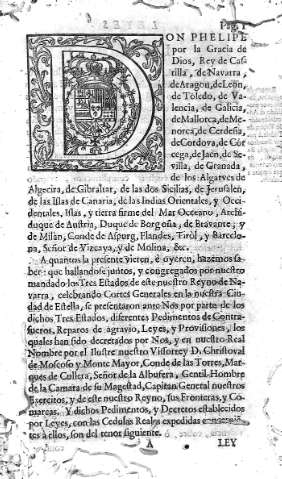 Pag. 1
DON PHELIPE
por la Gracia de
Dios, Rey de Cas
tilla, de Navarra,
de Aragon, de Leon,
de Toledo, de Va-
lencia, de Galicia,
de Mallorca, de Me-
norca, de Cerdeña,
de Cordova, de Cor
cega, de Jaén, de Se-
villa, de Granada,
de los Algarves de
Algecira, de Gibraltar, de las dos Sicilias, de Jerusalén,
de las Islas de Canaria, de las Indias Orientales, y Occi-
dentales, Islas, y tierra firme del Mar Oceano, Archi-
duque de Austria, Duque de Borgoña, de Bravante; y
de Milán, Conde de Aspurg, Flandes, Tiròl, y Barcelo-
na, Señor de Vizcaya, y de Molina, &c.
A quantos la presente vieren, è oyeren, hazemos sa-
ber: que hallandose juntos, y congregados por nuestro
mandado los Tres Estados de este nuestro Reyno de Na-
varra, celebrando Cortes Generales en la nuestra Ciu-
dad de Estella, se presentaron ante Nos por parte de los
dichos Tres Estados, diferentes Pedimentos de Contra-
fueros, Reparos de agravio, Leyes, y Provisiones, los
quales han sido decretados por Nos, y en nuestro Real
Nombre por el Ilustre nuestro Visorrey D. Christoval
de Moscoso y Monte Mayor, Conde de las Torres, Mar-
ques de Cullera, Señor de la Albufera, Gentil-Hombre
de la Camara de su Magestad, Capitan General nuestros
Exercitos, y de este nuestro Reyno, sus Fronteras, y Co-
marcas. Y dichos Pedimentos, y Decretos establecidos
por Leyes, con las Cedulas Reales expedidas
tes à ellos, son del tenor siguiente.
A LEY